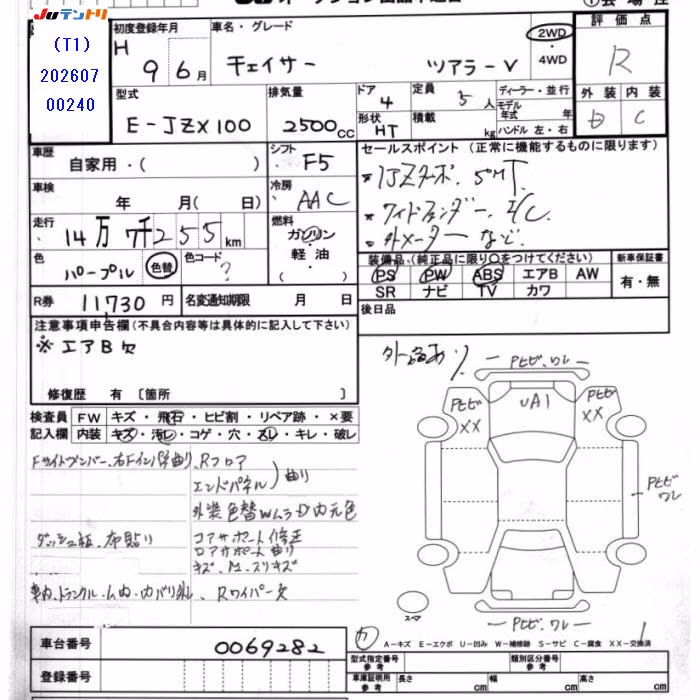 JUテントリ
(T1)
202607
00240
初度登録年月
H 9 6月
車名・グレード
チェイサー ツアラーV
2WD
・
4WD
評価点
R
外装 内装
D C
型式
E-JZX100
排気量
2500cc
ドア 4
形状 HT
定員 5人
積載 kg
ディーラー・並行
モデル年式 年
ハンドル 左・右
車歴
自家用・( )
シフト F5
車検
年 月( 日)
冷房 AAC
走行
14万7千255km
燃料
ガソリン
・
軽油
( )
色 パープル 色替
色コード ?
R券 11,730円
名変通知期限 月 日
セールスポイント(正常に機能するものに限ります)
* 1JZターボ、5MT
* ワイドフェンダー、I/C
* 外メーターなど
装備品(純正品に限り○をつけてください)
PS PW ABS エアB AW
SR ナビ TV カワ
新車保証書
有・無
後日品
注意事項申告欄(不具合内容等は具体的に記入して下さい)
※エアB欠
修復歴 有〔箇所 〕
検査員記入欄
FW キズ・飛石・ヒビ割・リペア跡・×要
内装 キズ・汚レ・コゲ・穴・スレ・キレ・破レ
Fサイドメンバー、右Fインパネ曲り、Rフロア
エンドパネル)曲り
外装色替ムラ 内元色
ダッシュ板、布貼り
コアサポート修正
ロアサポート曲り
キズ、M、スリキズ
車内、トランクルーム内・内バリ外レ、Rワイパー欠
外品あり
Pヒビ、ワレ
Pヒビ XX
UA1
Pヒビ XX
Pヒビ ワレ
Pヒビ、ワレ
スペア
A-キズ E-エクボ U-凹み W-補修跡 S-サビ C-腐食 XX-交換済
車台番号 0069282
登録番号
型式指定番号 参考
類別区分番号 参考
車庫証明用 参考
長さ cm
幅 cm
高さ cm